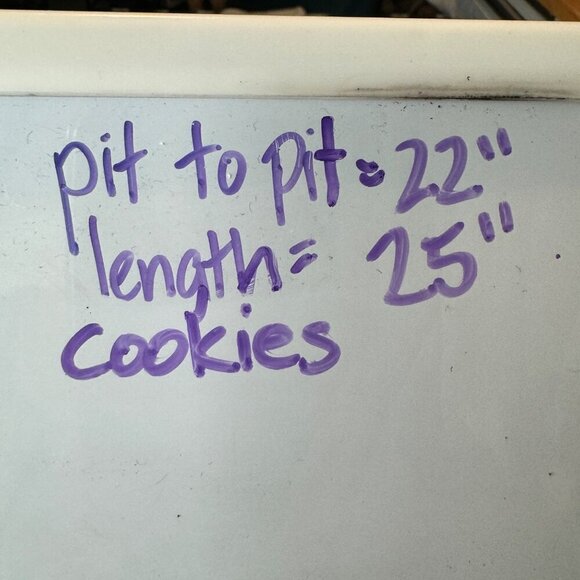 pit to pit = 22"
length = 25"
cookies